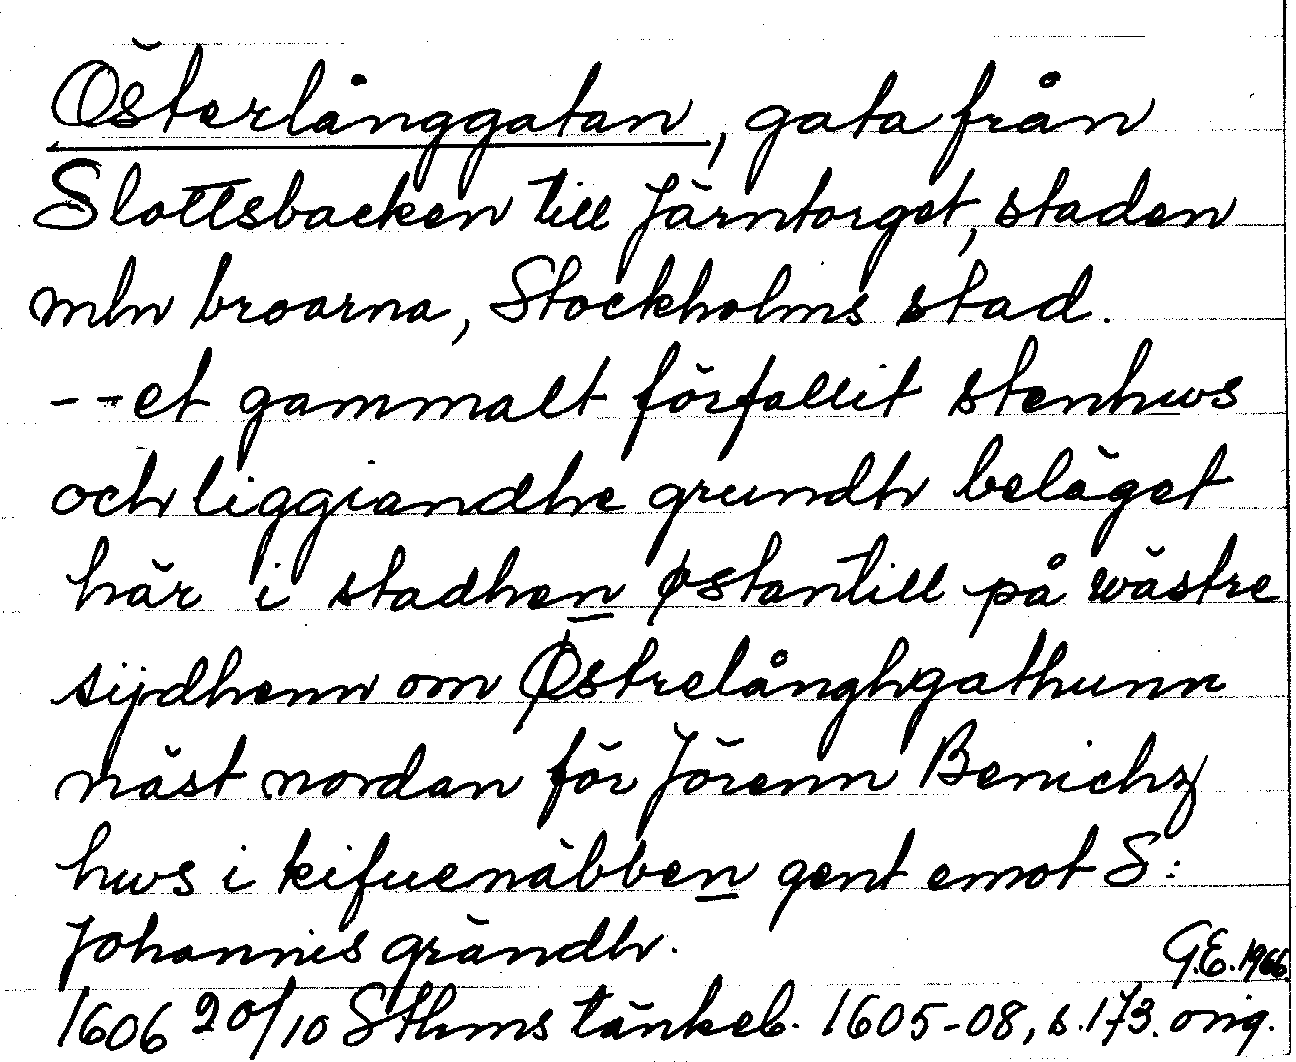 Österlånggatan, gata från
Slottsbacken till Järntorget, staden
mln broarna, Stockholms stad.
--et gammalt förfallit stenhws
och liggiandhe grundh beläget
här i stadhen østantill på wästre
sijdhenn om Østrelånghgathunn
näst nordan för Jörenn Benichz
hws i kifuenäbben gent emot S:
Johannis grändh.
G.E. 1966.
1606 20/10 Sthms tänkeb. 1605-08, s. 173. orig.